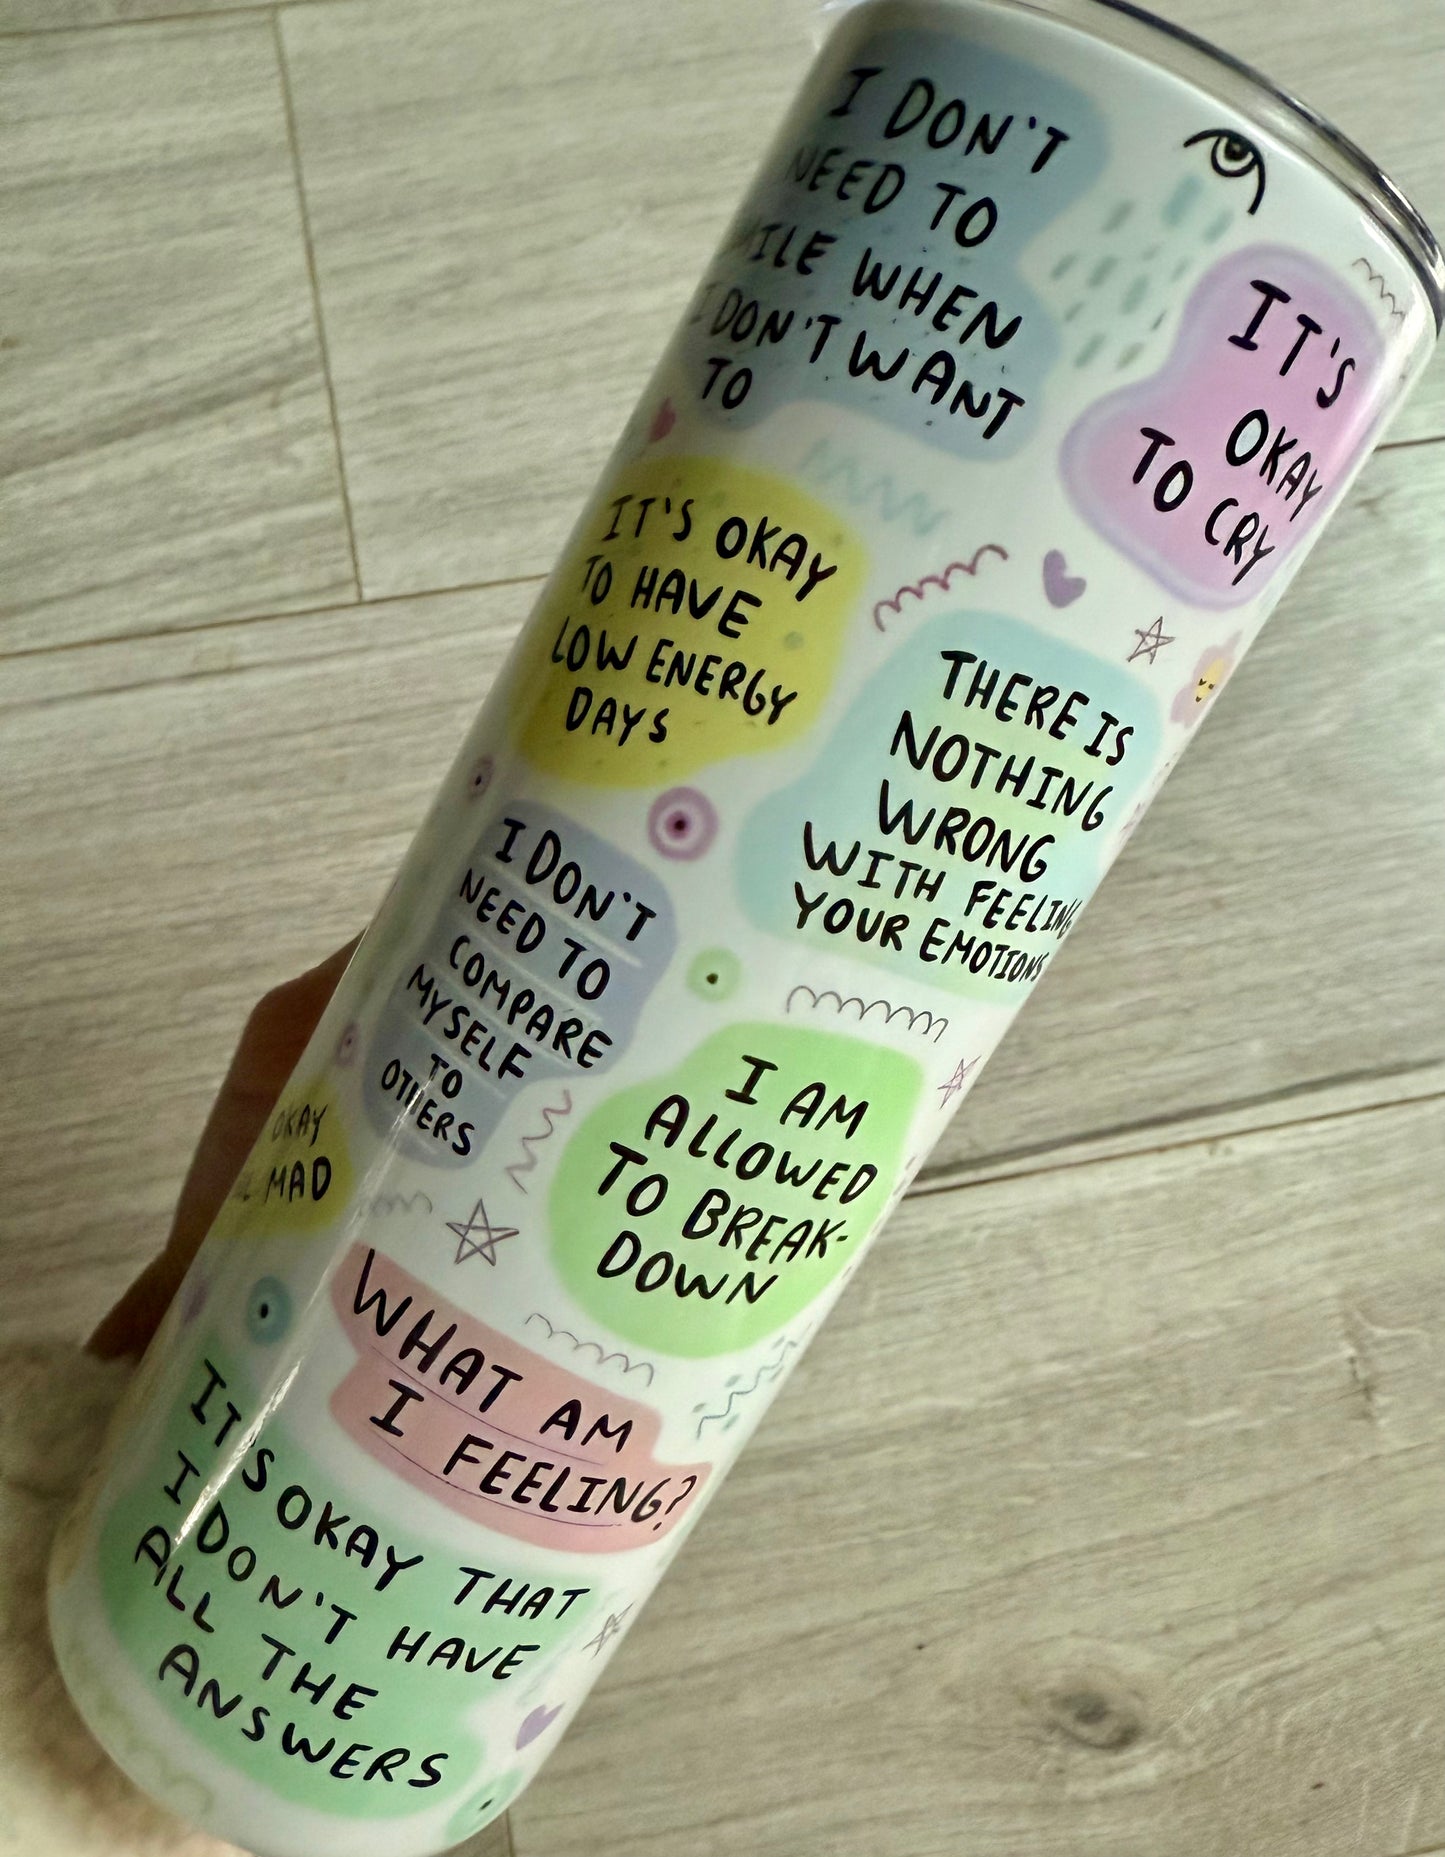 I DON'T
NEED TO
WHEN
I DON'T WANT
TO
IT'S
OKAY
TO CRY
IT'S OKAY
TO HAVE
LOW ENERGY
DAYS
THERE IS
NOTHING
WRONG
WITH FEELING
YOUR EMOTIONS
I DON'T
NEED TO
COMPARE
MYSELF
TO
OTHERS
I AM
ALLOWED
TO BREAK-
DOWN
OKAY
MAD
WHAT AM
I FEELING?
IT'S OKAY THAT
I DON'T HAVE
ALL THE
ANSWERS